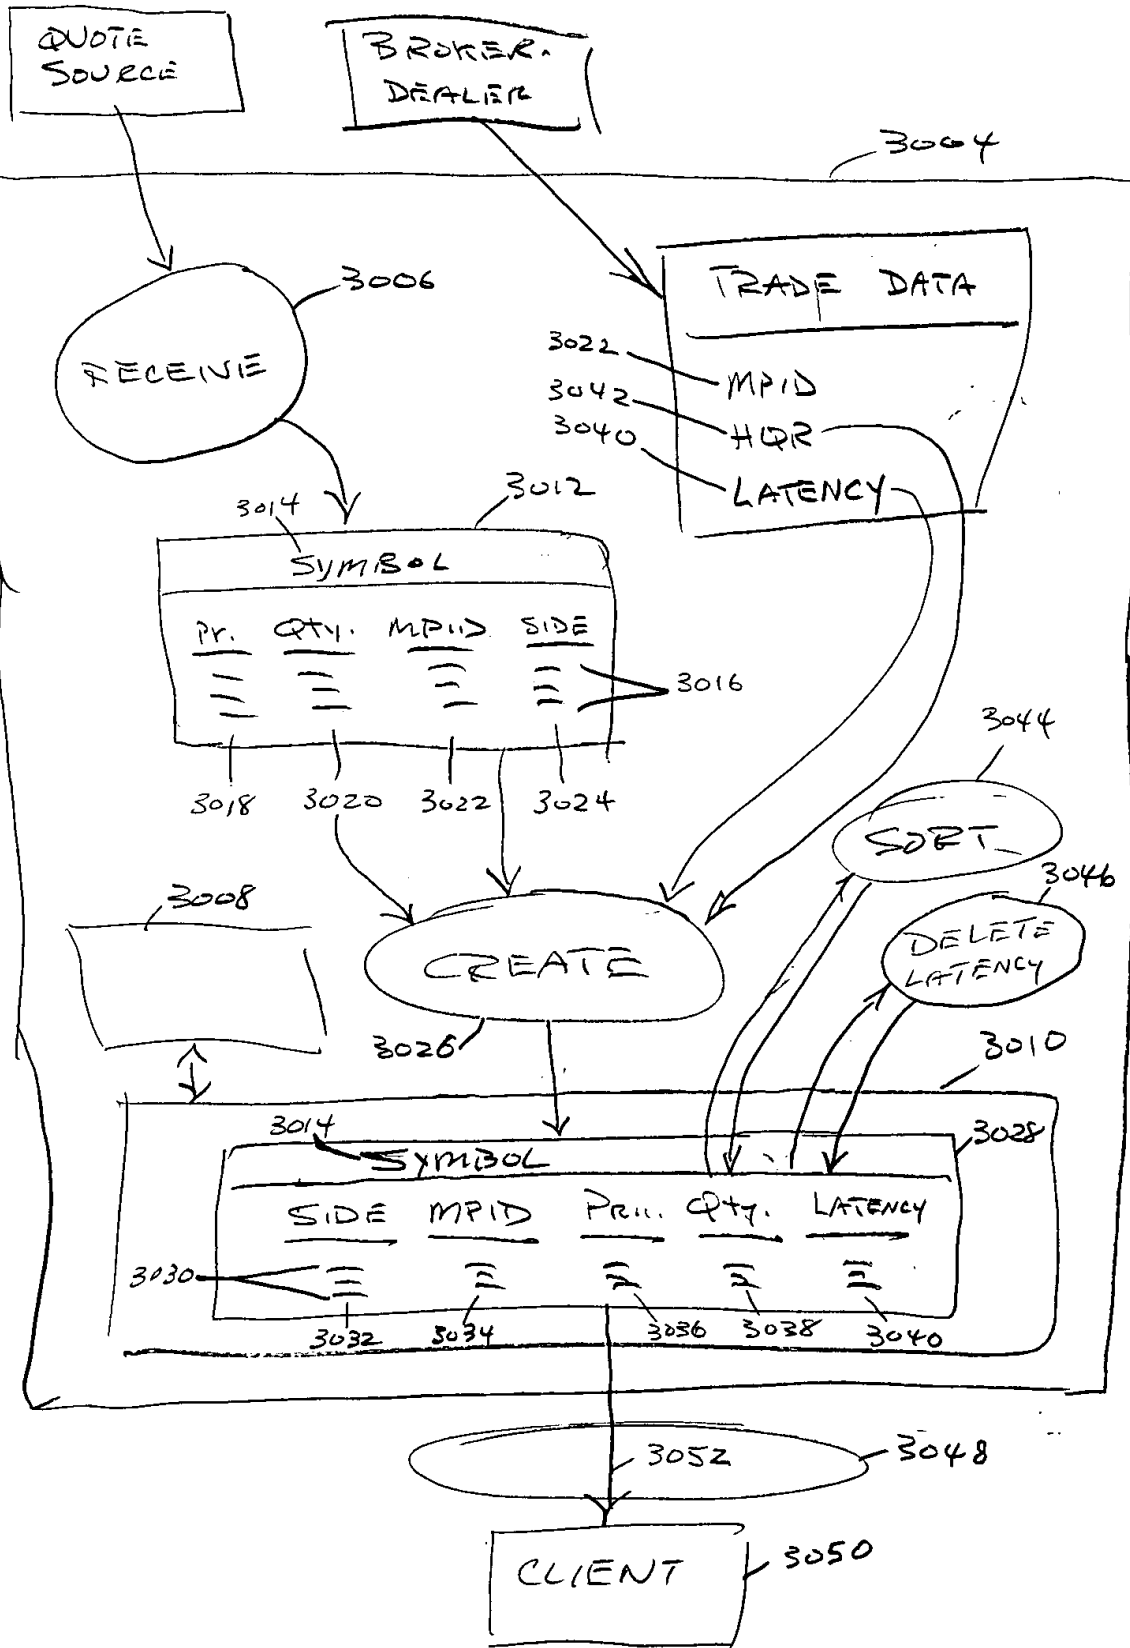 QUOTE
SOURCE
BROKER-
DEALER
3004
3006
RECEIVE
TRADE DATA
3022
MPID
3042
HQR
3040
LATENCY
3012
3014
SYMBOL
Pr. Qty. MPIID SIDE
3016
3018 3020 3022 3024
3044
SORT
3046
DELETE
LATENCY
3008
CREATE
3026
3010
3014
SYMBOL
3028
SIDE MPID Pri. Qty. LATENCY
3030
3032 3034 3036 3038 3040
3052
3048
CLIENT
3050